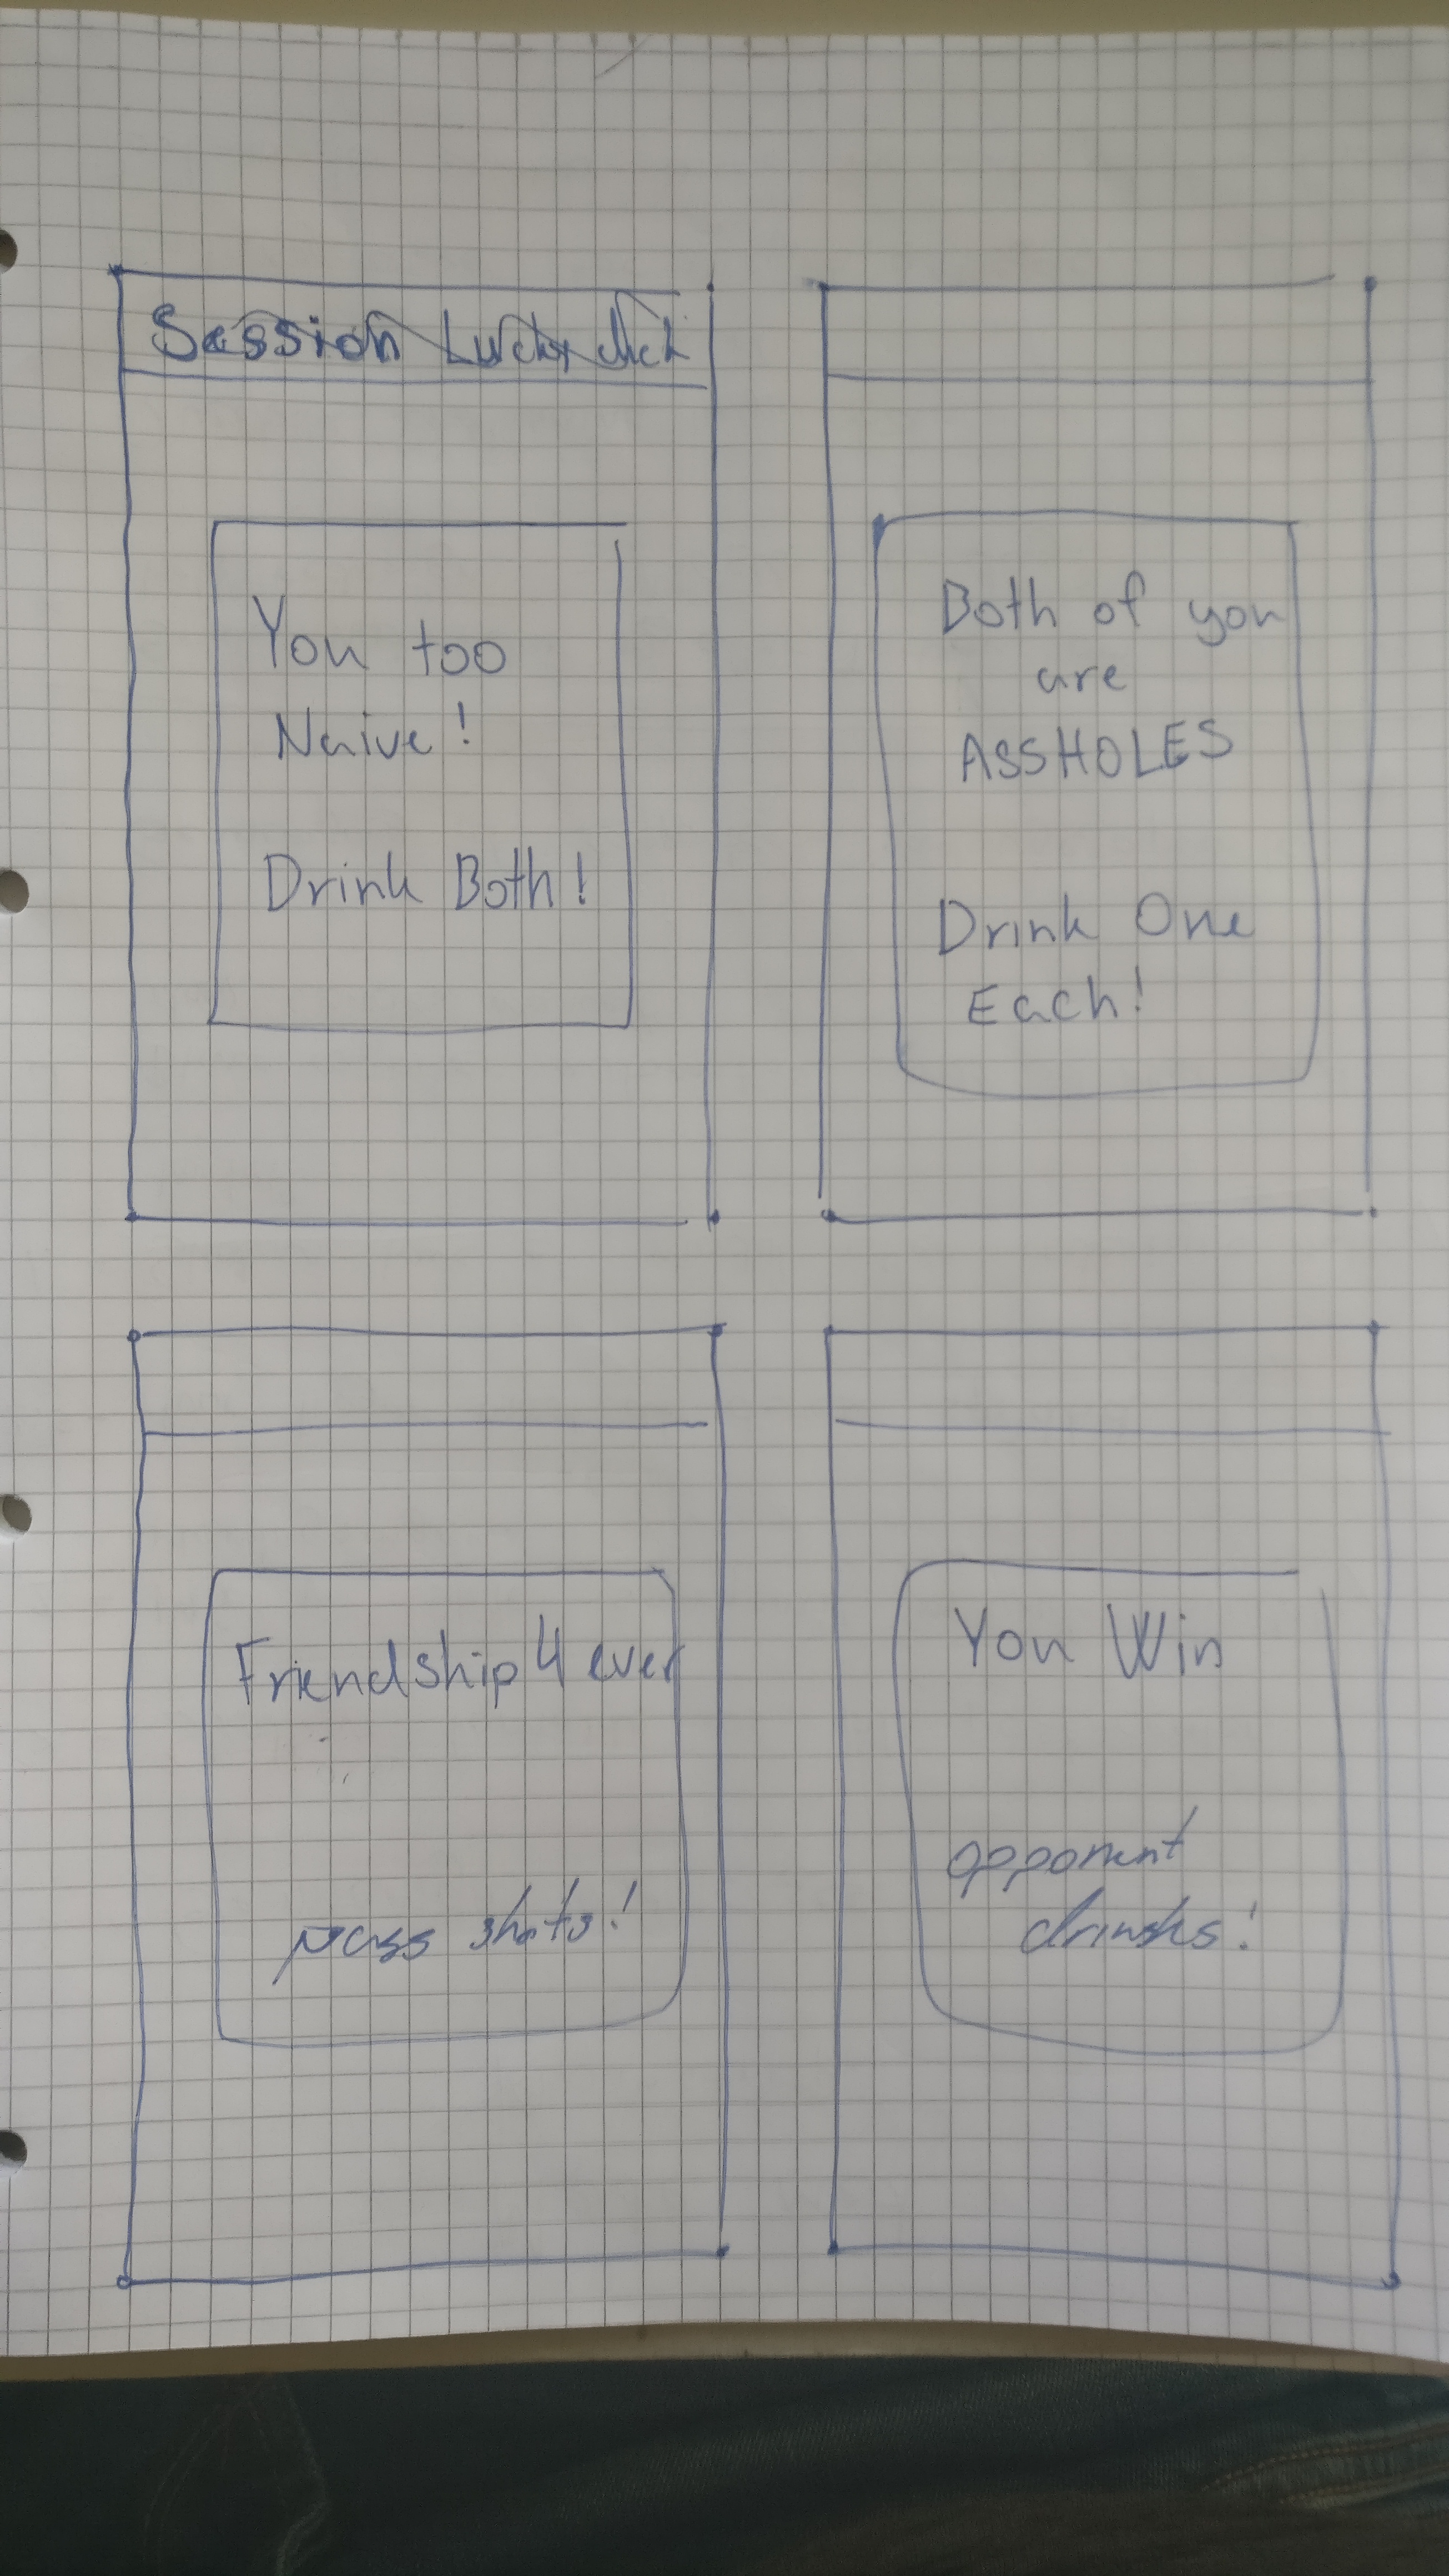 Session
You too
Naive!
Drink Both!
Both of you
are
ASSHOLES
Drink One
Each!
Friendship 4 ever
pass shots!
You Win
opponent
drinks!